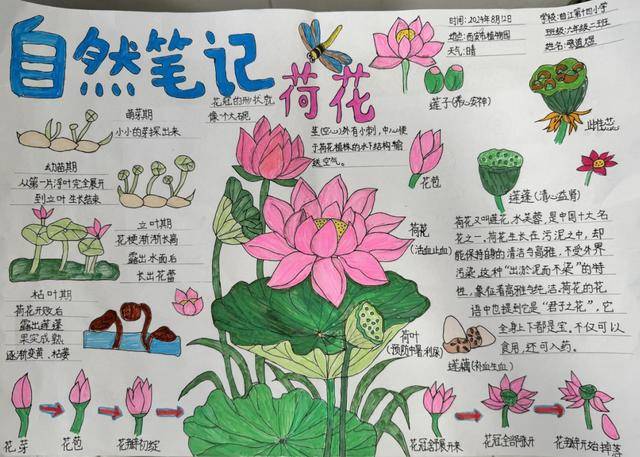 自然笔记
荷花
时间：2024年8月12日
地点：西安市植物园
天气：晴
学校：曲江第十四小学
班级：六年级二班
姓名：
花冠的形状就
像个大碗
茎(空心)外有小刺，中心便
于荷花植株的水下结构输
送空气。
莲子(养心安神)
花苞
莲蓬(清心益肾)
萌芽期
小小的芽探出来
幼苗期
从第一片浮叶完全展开
到立叶生长结束
立叶期
花梗渐渐长高
露出水面后
长出花蕾
枯叶期
荷花开败后
露出莲蓬
果实成熟
逐渐变黄、枯萎
荷花
(活血止血)
荷叶
(预防中暑、利尿)
荷花又叫莲花、水芙蓉，是中国十大名
花之一，荷花生长在污泥之中，却
能保持自身的清洁与高雅，不受外界
污染，这种“出淤泥而不染”的特
性，象征着高雅与纯洁，荷花的花
语中也提到它是“君子之花”，它
全身上下都是宝，不仅可以
食用，还可入药。
莲藕(补血生血)
花芽
花苞
花瓣初绽
花冠舒展开来
花冠全部展开
花瓣开始掉落